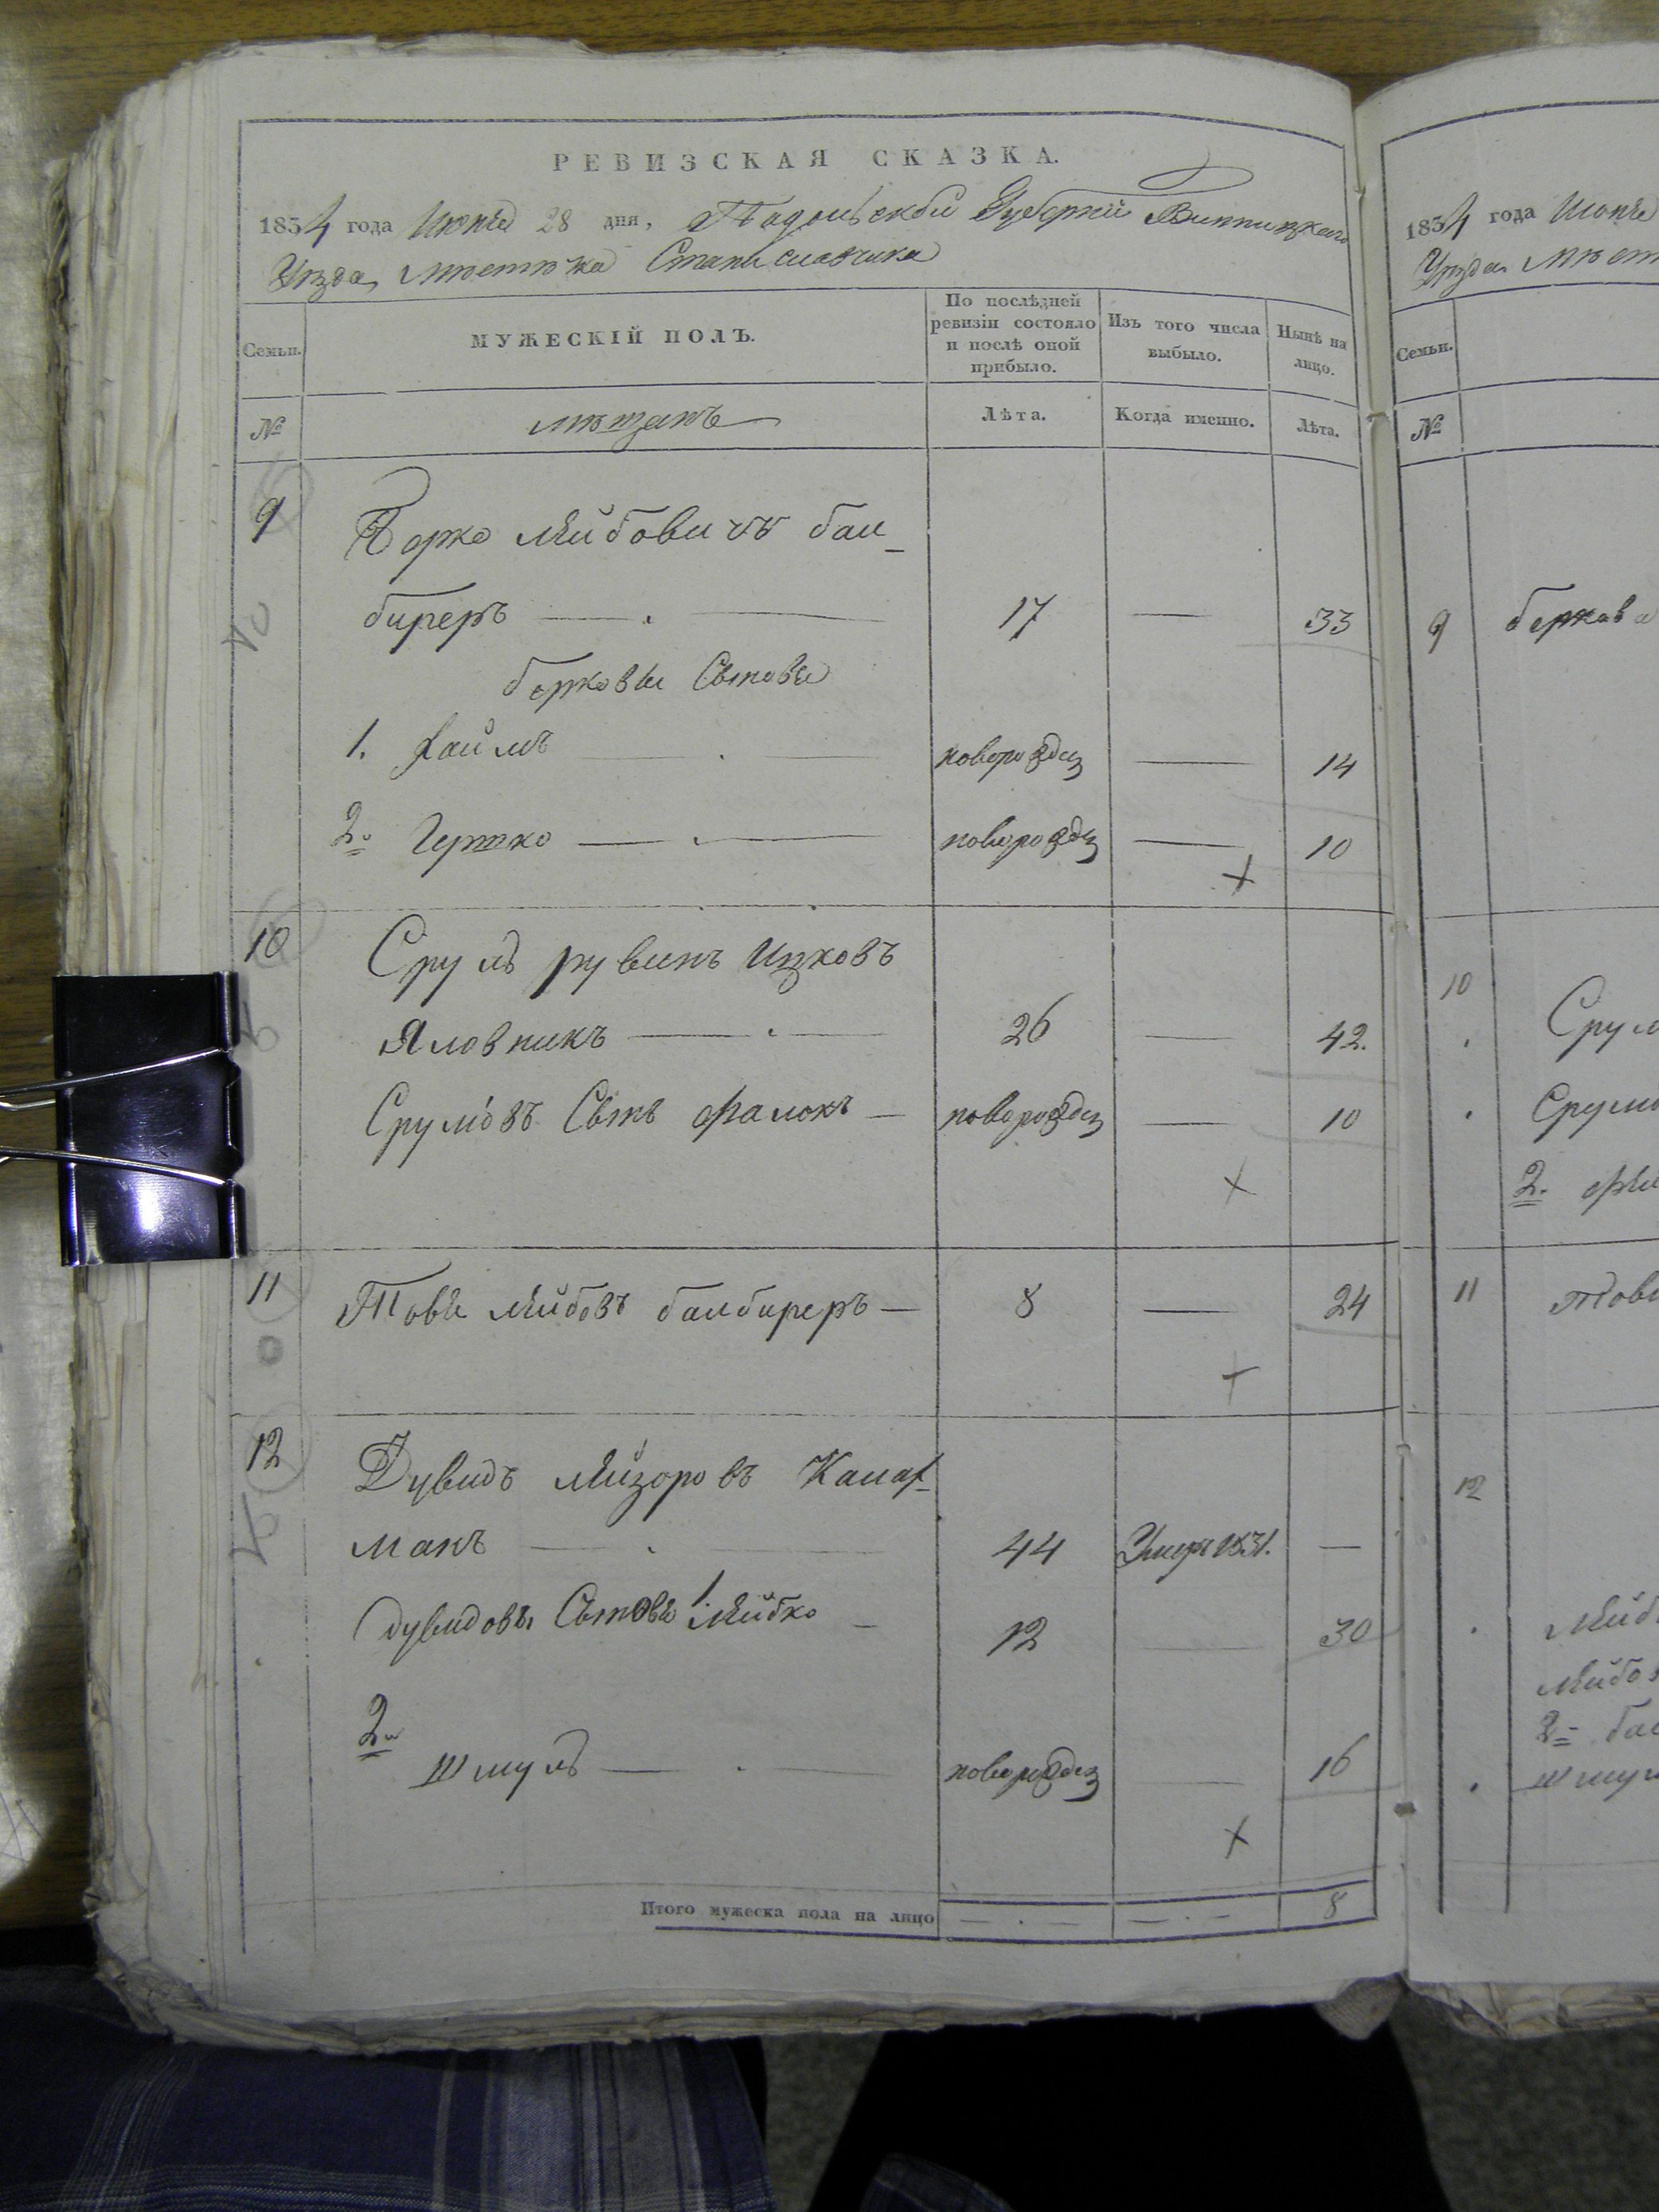 РЕВИЗСКАЯ СКАЗКА.
1854 года Июня 28 дня, Подольской Губернии Винницкаго
Уезда, местечка Станиславчика
Семьи.
МУЖЕСКІЙ ПОЛЪ.
По послѣдней ревизіи состояло и послѣ оной прибыло.
Изъ того числа выбыло.
Нынѣ на лицо.
№
мещанъ
Лѣта.
Когда именно.
Лѣта.
9 Берко Лейбовичъ бал-
биреръ 17 — 33
берковы Сыновья
1. Хаимъ новорожд 14
2. Гершко — новорожд — 10
10 Сруль рувинъ Ицковъ
Яловникъ — 26 — 42.
Срулювъ Сынъ — новорожд — 10
11 Товія Лейбовъ балбиреръ — 8 — 24
12 Дувидъ Лейзоровъ
манъ 44 Умеръ —
дувидовы Сыновья 1. Лейбко — 12 30
2. Шмуль — новорожд 16
Итого мужеска пола на лицо — . — — . — 8
1854 года Июня
Уезда
Семьи.
№
9 беркова
10
2.
11
12
2.